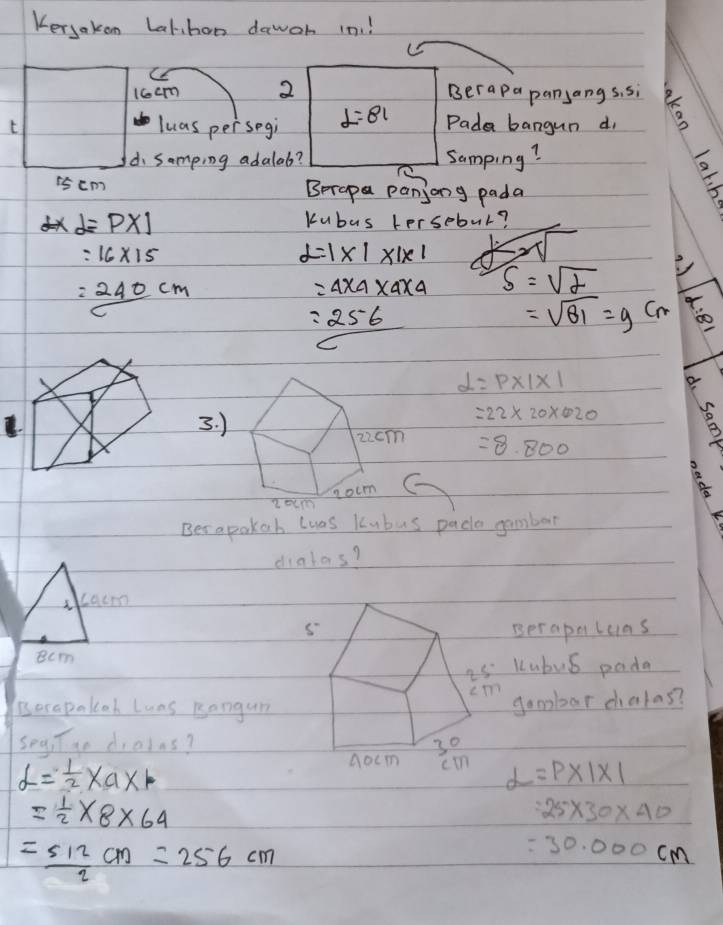 Kerjakan Latihan dawah ini!
16cm
luas persegi
di samping adalah?
t
15 cm
L = P X l
= 16 X 15
= 240 cm
2
L = 81
Berapa panjang sisi
Pada bangun di
Samping?
Berapa panjang pada
Kubus tersebut?
L = l X l X l X l
= 4 X 4 X 4 X 4
= 256
S = √L
= √81 = 9 Cm
3.)
22cm
20cm
20cm
Berapakah Luas Kubus pada gambar
diatas?
L = P X l X l
= 22 X 20 X 20
= 8.800
64cm
8cm
Berapakah Luas Bangun
Segitiga diatas?
L = 1/2 X a X t
= 1/2 X 8 X 64
= 512/2 cm = 256 cm
5
25 cm
30 cm
40cm
Berapa Luas
Kubus pada
gambar diatas?
L = P X l X l
= 25 X 30 X 40
= 30.000 cm
L:81
di Samp
pada